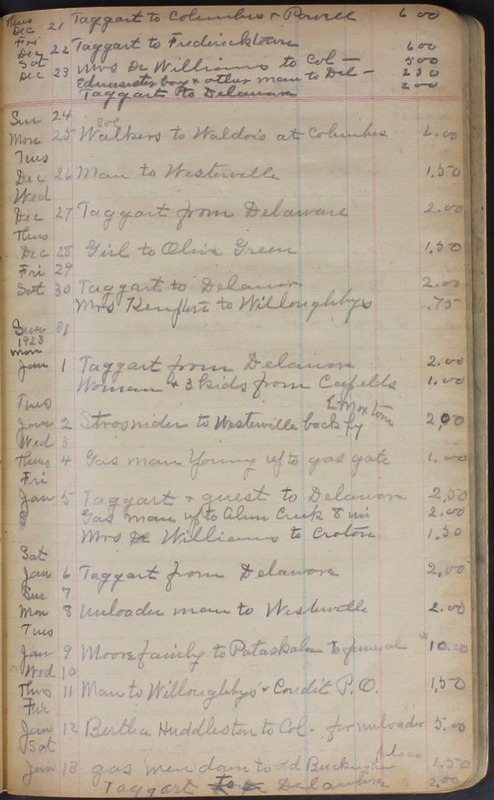 Thurs
Dec 21 Taggart to Columbus & Powell 6 00
Fri
Dec 22 Taggart to Fredericktown 6 00
Sat
Dec 23 Mrs Dr Williams to Col — 5 00
boy & other man to Del — 2 50
Taggart to Delaware 2 00
Sun 24
Mon 25 Walkers to Waldo's at Columbus 6.00
Tues
Dec 26 Man to Westerville 1.50
Wed
Dec 27 Taggart from Delaware 2.00
Thurs
Dec 28 Girl to Olive Green 1.50
Fri 29
Sat 30 Taggart to Delaware 2.00
Mrs to Willoughbys .75
Sun 31
1923
Mon
Jan 1 Taggart from Delaware 2.00
Woman & 3 kids from 1.00
Tues
Jan 2 Strosnider to Westerville back by 2,00
Wed 3
Thurs 4 Gas man Young up to gas gate 1.00
Fri
Jan 5 Taggart & guest to Delaware 2,50
Gas man up to Alum Creek 8 mi 2.00
Mrs Dr Williams to Croton 1.50
Sat
Jan 6 Taggart from Delaware 2,00
Sun 7
Mon 8 Unloader man to Westerville 2.00
Tues
Jan 9 Moore family to Pataskala to funeral 10.00
Wed 10
Thurs 11 Man to Willoughby's & Condit P.O. 1,50
Fri
Jan 12 Bertha Huddleston to Col. for unloader 5.00
Sat
Jan 13 gas men down to old place 1.50
Taggart to Delaware 2.00